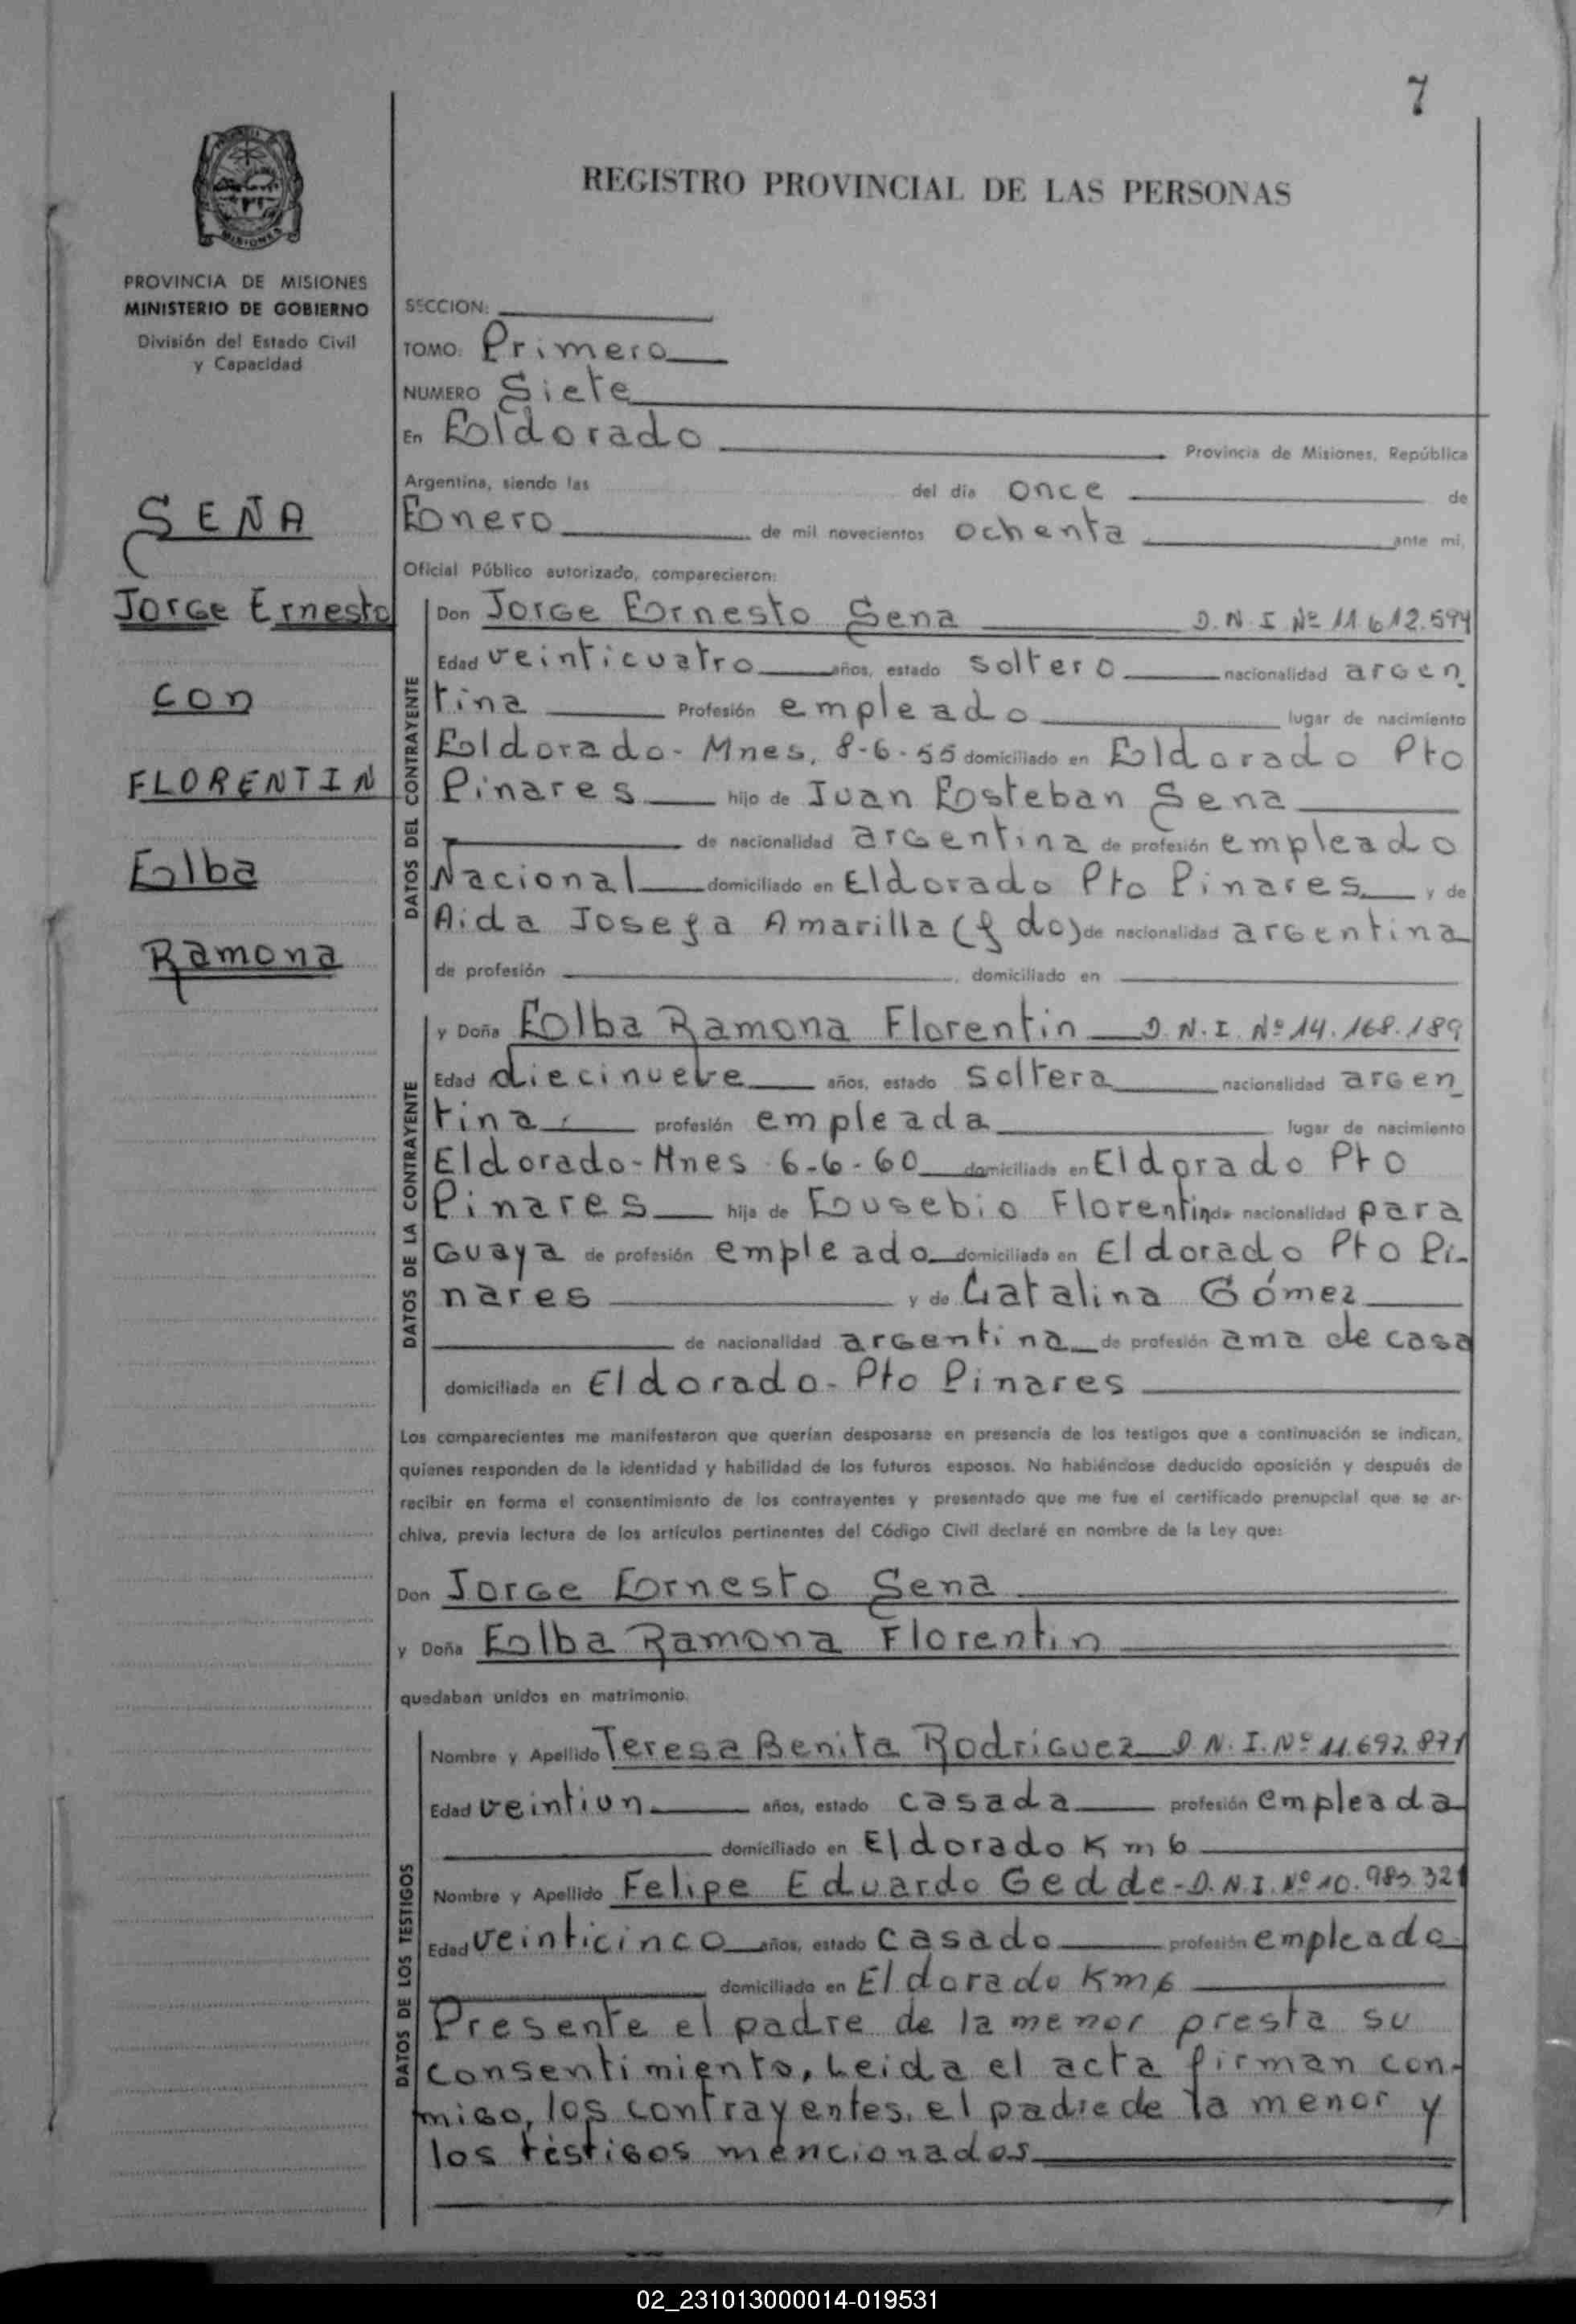 7
REGISTRO PROVINCIAL DE LAS PERSONAS
MISIONES
PROVINCIA DE MISIONES
MINISTERIO DE GOBIERNO
División del Estado Civil
y Capacidad
SEÑA
Jorge Ernesto
con
FLORENTIN
Elba
Ramona
SECCION:
TOMO: Primero
NUMERO Siete
En Eldorado Provincia de Misiones, República
Argentina, siendo las del día once de
Enero de mil novecientos ochenta ante mi,
Oficial Público autorizado, comparecieron:
DATOS DEL CONTRAYENTE
Don Jorge Ernesto Sena D.N.I Nº 11.612.594
Edad veinticuatro años, estado soltero nacionalidad argen
tina Profesión empleado lugar de nacimiento
Eldorado- Mnes, 8-6-55 domiciliado en Eldorado Pto
Pinares hijo de Juan Esteban Sena
de nacionalidad argentina de profesión empleado
Nacional domiciliado en Eldorado Pto Pinares y de
Aida Josefa Amarilla (f do) de nacionalidad argentina
de profesión , domiciliado en
DATOS DE LA CONTRAYENTE
y Doña Elba Ramona Florentin D.N.I. Nº 14.168.189
Edad diecinueve años, estado soltera nacionalidad argen
tina profesión empleada lugar de nacimiento
Eldorado-Mnes 6-6-60 domiciliada en Eldorado Pto
Pinares hija de Eusebio Florentin de nacionalidad para
guaya de profesión empleado domiciliada en Eldorado Pto Pi-
nares y de Catalina Gómez
de nacionalidad argentina de profesión ama de casa
domiciliada en Eldorado- Pto Pinares
Los comparecientes me manifestaron que querían desposarse en presencia de los testigos que a continuación se indican,
quienes responden de la identidad y habilidad de los futuros esposos. No habiéndose deducido oposición y después de
recibir en forma el consentimiento de los contrayentes y presentado que me fue el certificado prenupcial que se ar-
chiva, previa lectura de los artículos pertinentes del Código Civil declaré en nombre de la Ley que:
Don Jorge Ernesto Sena
y Doña Elba Ramona Florentin
quedaban unidos en matrimonio.
DATOS DE LOS TESTIGOS
Nombre y Apellido Teresa Benita Rodriguez D.N.I. Nº 11.697.871
Edad veintiun años, estado casada profesión empleada
domiciliado en Eldorado Km 6
Nombre y Apellido Felipe Eduardo Gedde- D.N.I. Nº 10.983.321
Edad veinticinco años, estado casado profesión empleado
domiciliado en Eldorado Km 6
Presente el padre de la menor presta su
consentimiento, Leida el acta firman con-
migo, los contrayentes, el padre de la menor y
los testigos mencionados
02_231013000014-019531